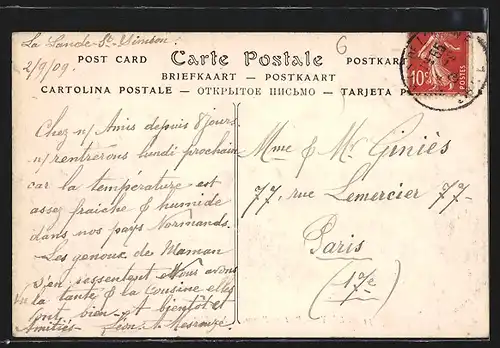 La Lande-St-Siméon.
2/9/09.
6
Carte Postale
POST CARD
POSTKAR
BRIEFKAART — POSTKAART
CARTOLINA POSTALE — ОТКРЫТОЕ ПИСЬМО — TARJETA P
10c
POSTES
Chez n/ Amis depuis 8 jours
n/ rentrerons lundi prochain
car la température est
assez fraiche & humide
dans nos pays Normands.
Les genoux de Maman
s'en ressentent Nous avons
vu la tante & la cousine elles
sont bien - et bientôt
Amitiés Léon
Mme & Mr Giniès
77, rue Lemercier 77
Paris
(17e)